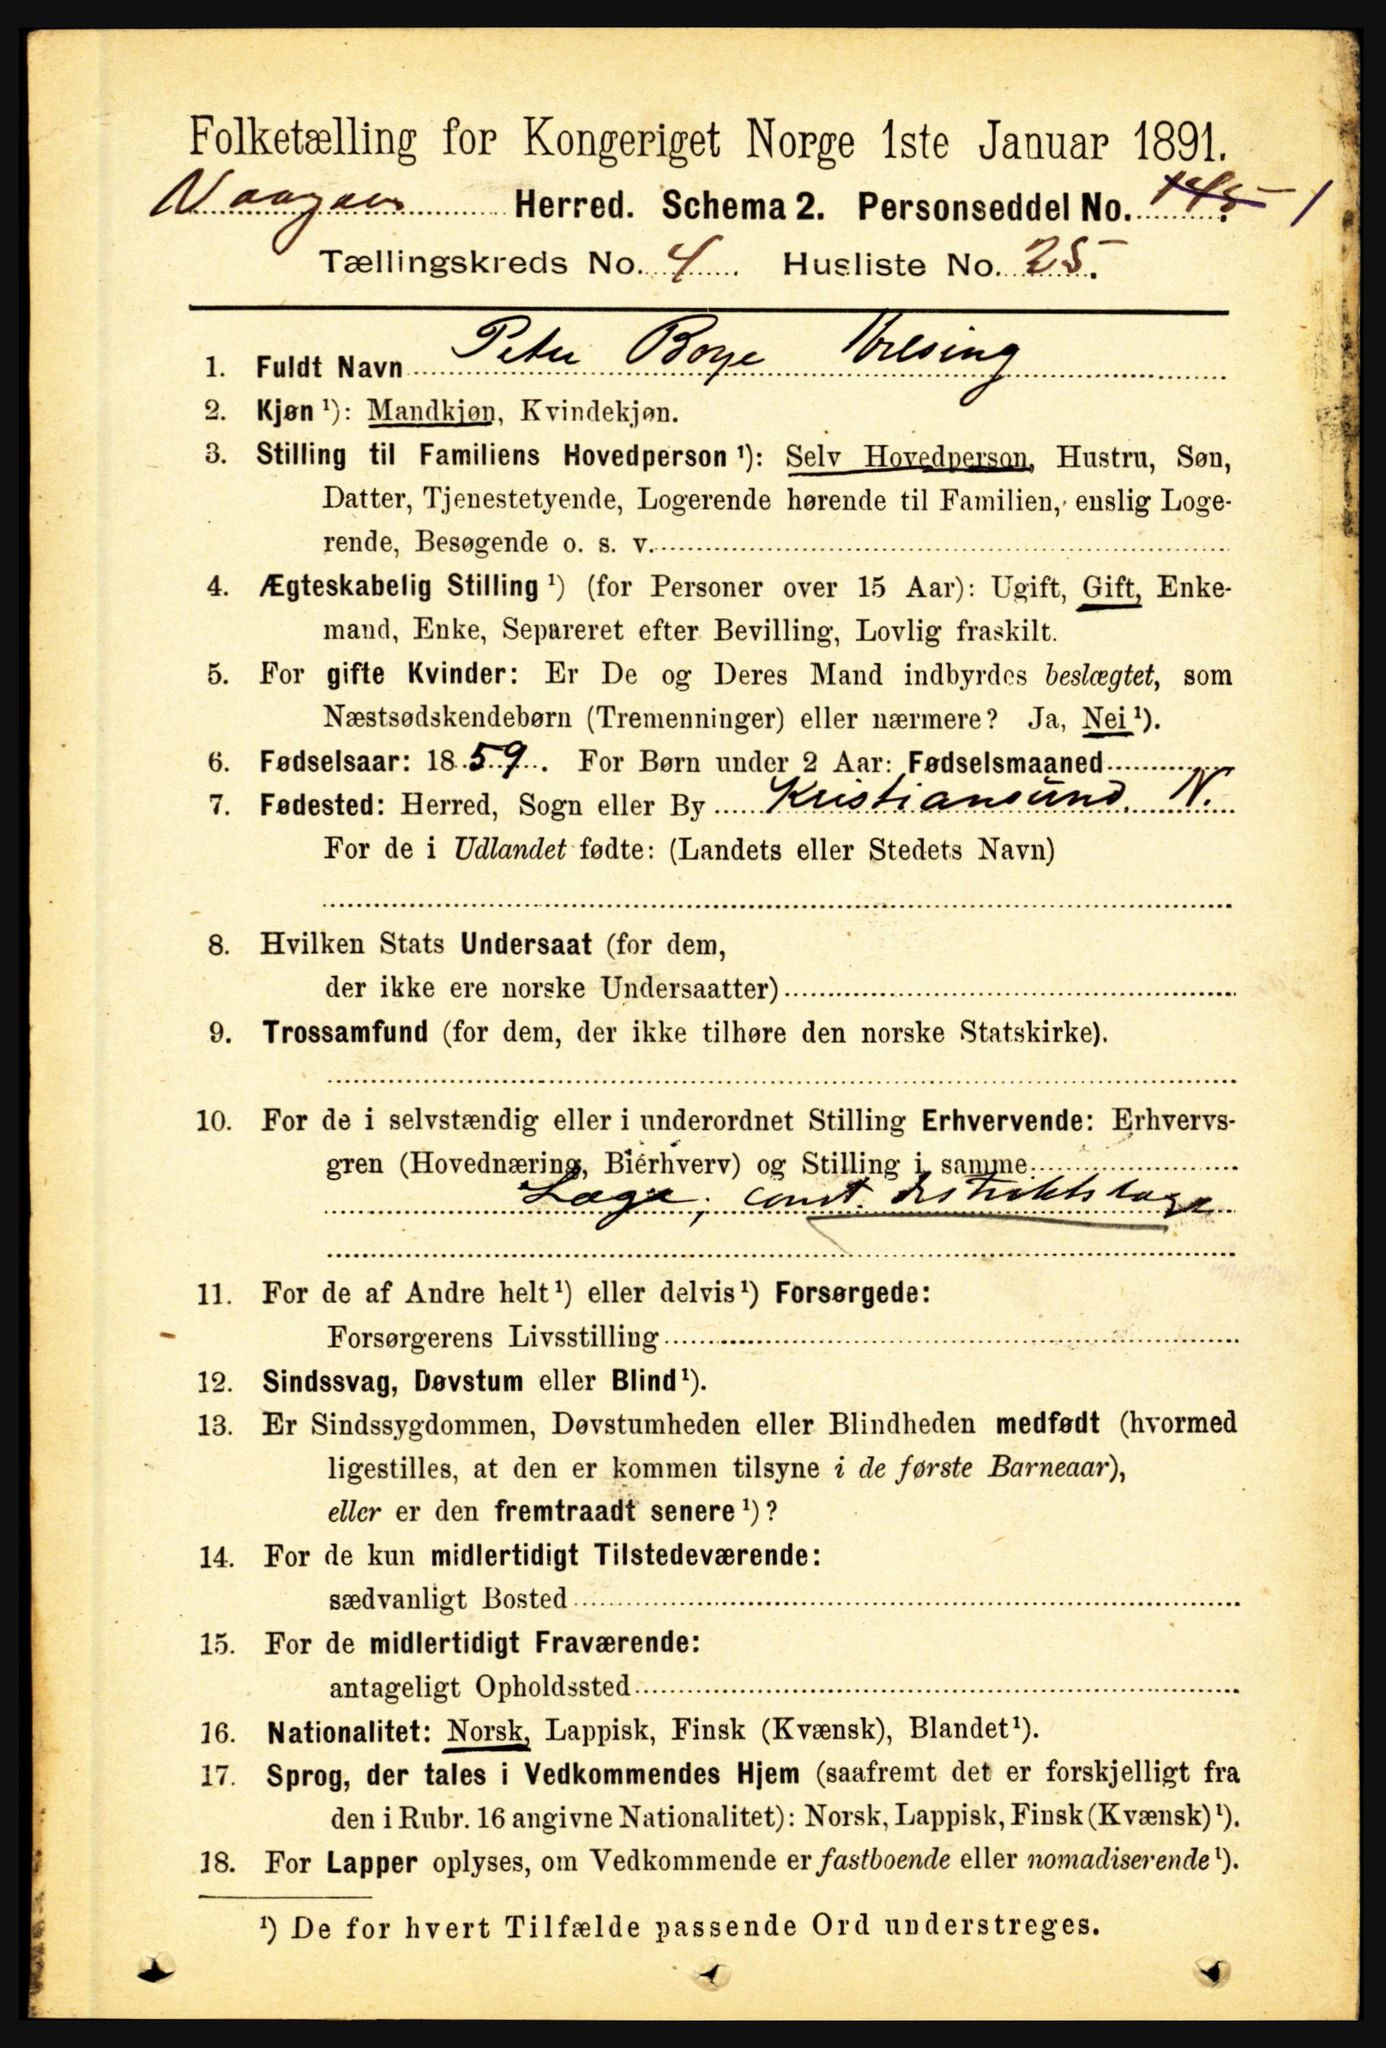 Folketælling for Kongeriget Norge 1ste Januar 1891.
Vaagan Herred. Schema 2. Personseddel No. 145 1
Tællingskreds No. 4. Husliste No. 25.
1. Fuldt Navn Peter Borge
2. Kjøn ¹): Mandkjøn, Kvindekjøn.
3. Stilling til Familiens Hovedperson ¹): Selv Hovedperson, Hustru, Søn,
Datter, Tjenestetyende, Logerende hørende til Familien, enslig Loge-
rende, Besøgende o. s. v.
4. Ægteskabelig Stilling ¹) (for Personer over 15 Aar): Ugift, Gift, Enke-
mand, Enke, Separeret efter Bevilling, Lovlig fraskilt.
5. For gifte Kvinder: Er De og Deres Mand indbyrdes beslægtet, som
Næstsødskendebørn (Tremenninger) eller nærmere? Ja, Nei ¹).
6. Fødselsaar: 1859. For Børn under 2 Aar: Fødselsmaaned
7. Fødested: Herred, Sogn eller By Kristiansund. N.
For de i Udlandet fødte: (Landets eller Stedets Navn)
8. Hvilken Stats Undersaat (for dem,
der ikke ere norske Undersaatter)
9. Trossamfund (for dem, der ikke tilhøre den norske Statskirke).
10. For de i selvstændig eller i underordnet Stilling Erhvervende: Erhvervs-
gren (Hovednæring, Bierhverv) og Stilling i samme
Læge, const. distriktslæge
11. For de af Andre helt ¹) eller delvis ¹) Forsørgede:
Forsørgerens Livsstilling
12. Sindssvag, Døvstum eller Blind ¹).
13. Er Sindssygdommen, Døvstumheden eller Blindheden medfødt (hvormed
ligestilles, at den er kommen tilsyne i de første Barneaar),
eller er den fremtraadt senere ¹)?
14. For de kun midlertidigt Tilstedeværende:
sædvanligt Bosted
15. For de midlertidigt Fraværende:
antageligt Opholdssted
16. Nationalitet: Norsk, Lappisk, Finsk (Kvænsk), Blandet ¹).
17. Sprog, der tales i Vedkommendes Hjem (saafremt det er forskjelligt fra
den i Rubr. 16 angivne Nationalitet): Norsk, Lappisk, Finsk (Kvænsk) ¹).
18. For Lapper oplyses, om Vedkommende er fastboende eller nomadiserende ¹).
¹) De for hvert Tilfælde passende Ord understreges.